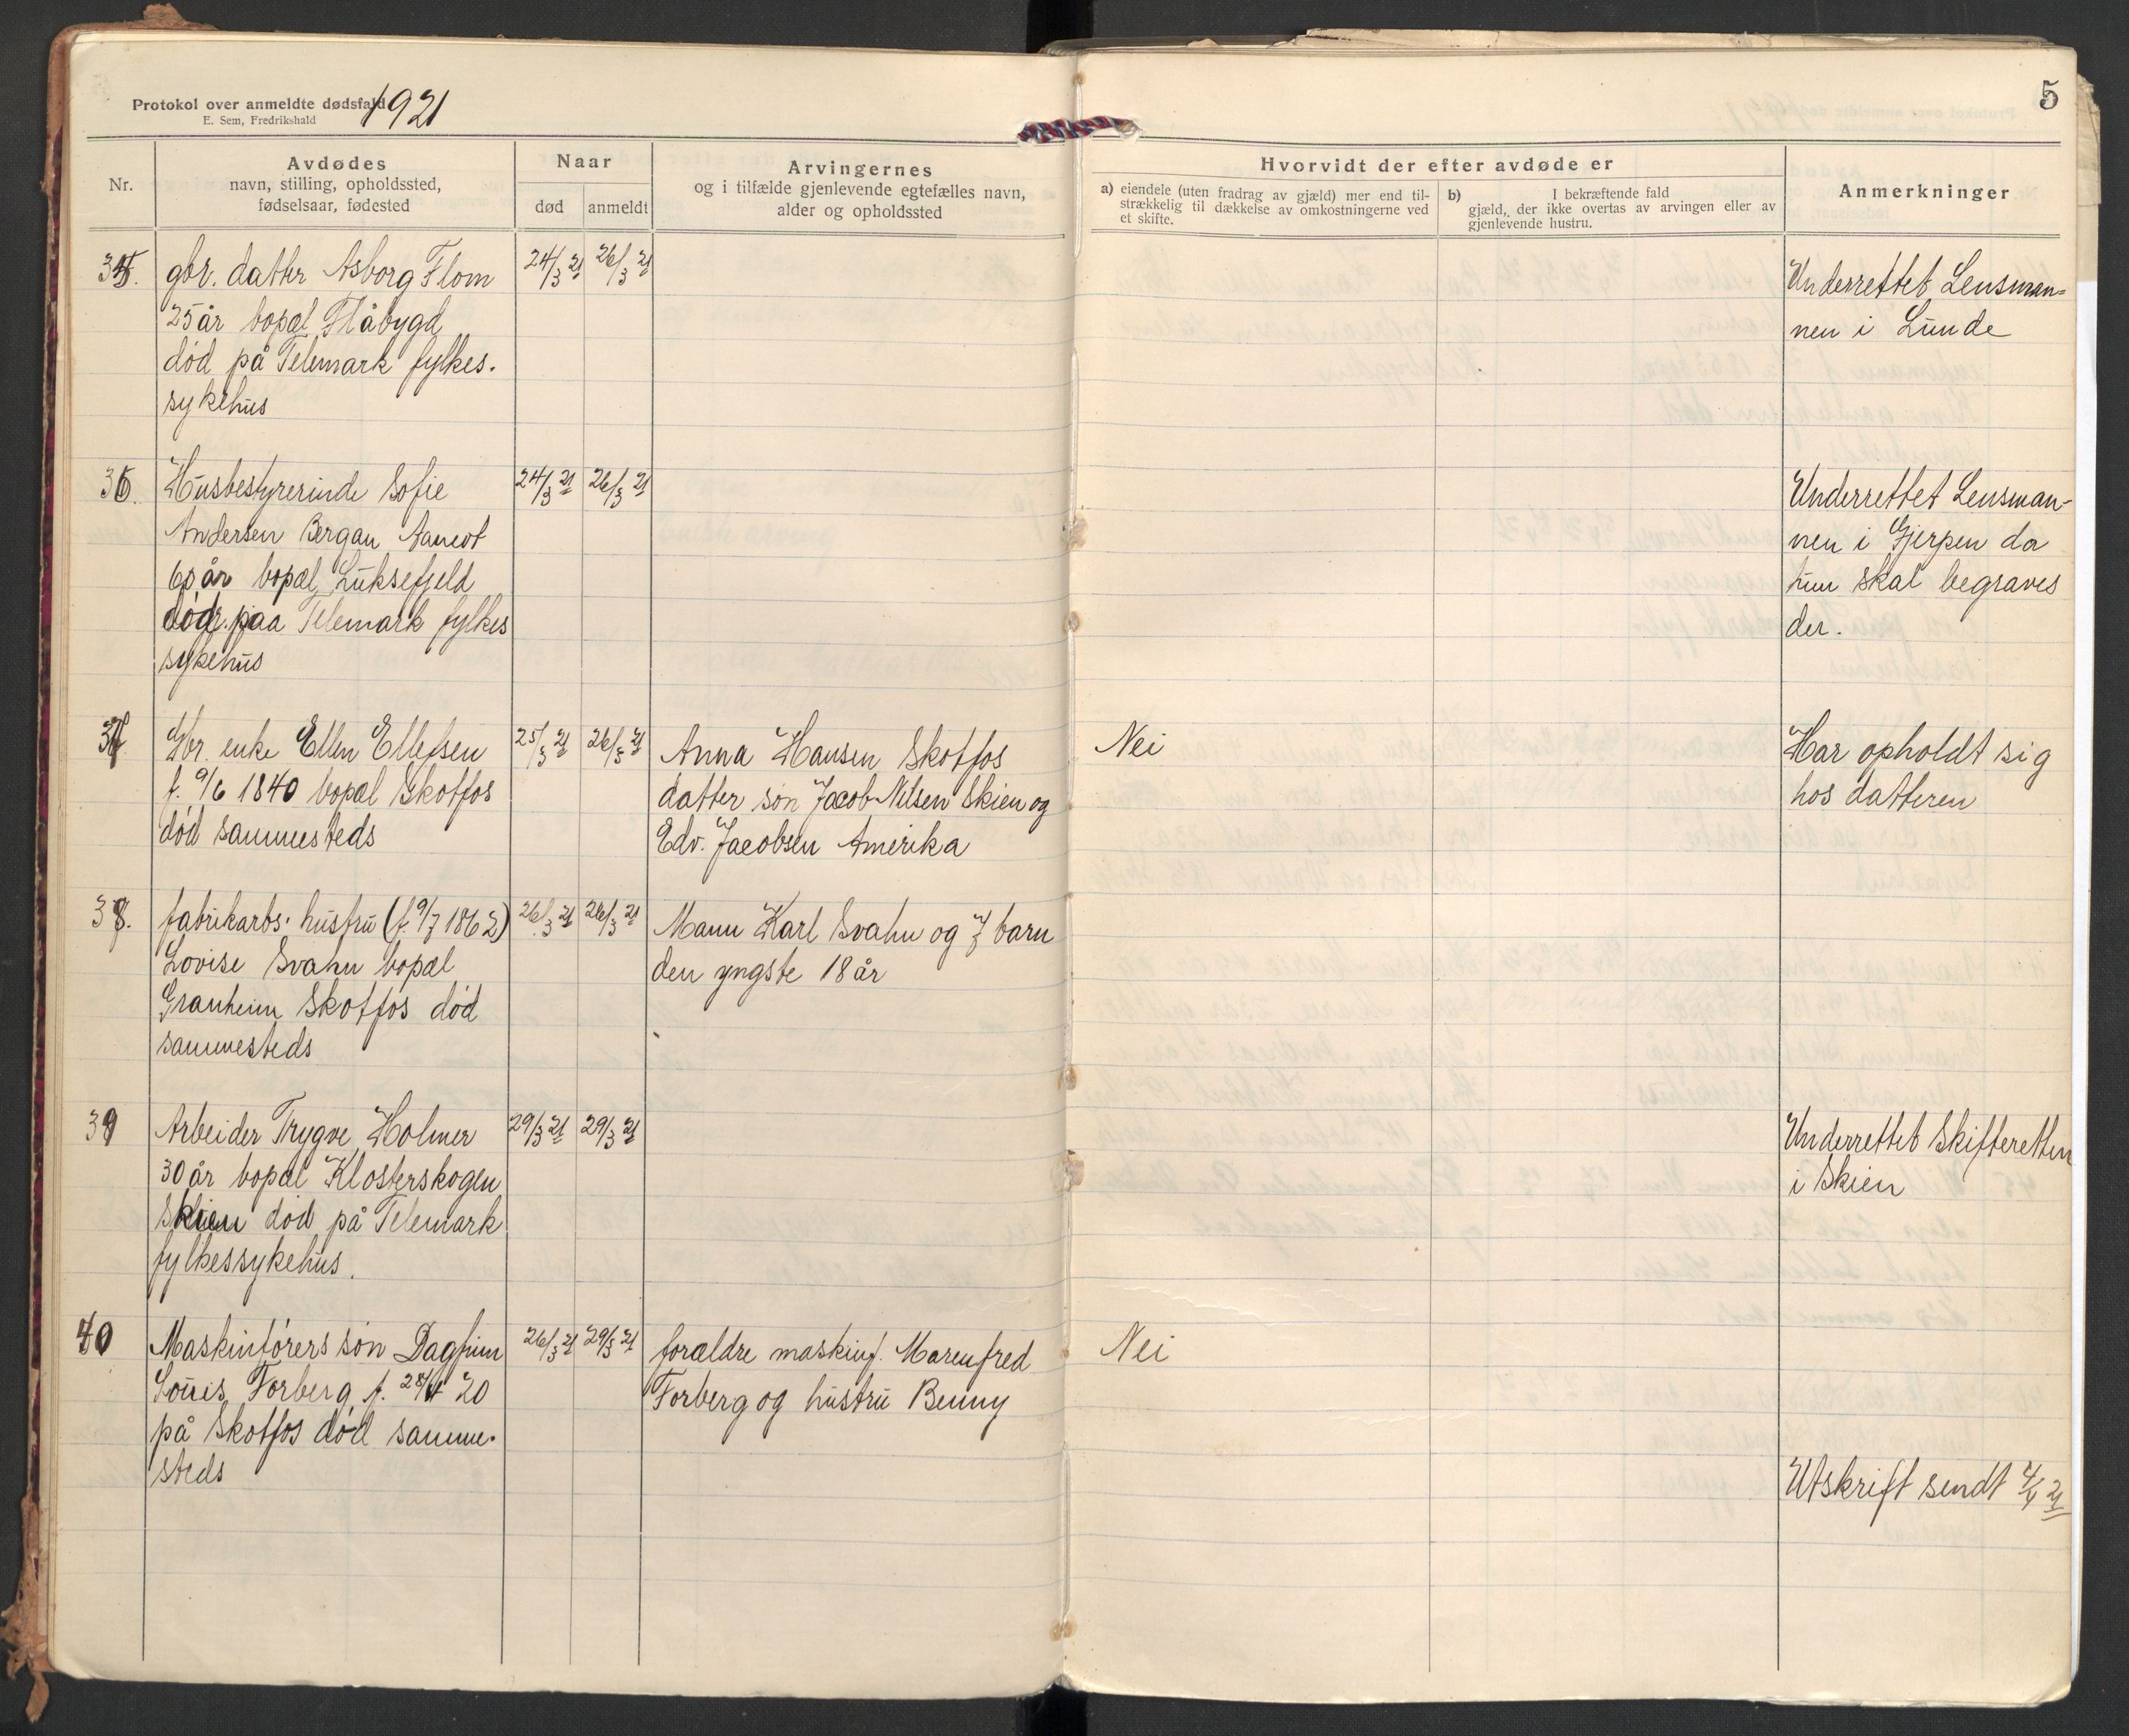 Protokol over anmeldte dødsfald 1921
E. Sem, Fredrikshald
5
Nr.
Avdødes
navn, stilling, opholdssted,
fødselsaar, fødested
Naar
død
anmeldt
Arvingernes
og i tilfælde gjenlevende egtefælles navn,
alder og opholdssted
Hvorvidt der efter avdøde er
a) eiendele (uten fradrag av gjæld) mer end til-
strækkelig til dækkelse av omkostningerne ved
et skifte.
b) I bekræftende fald
gjæld, der ikke overtas av arvingen eller av
gjenlevende hustru.
Anmerkninger
35. gbr. datter Asborg Flom 24/3 21 26/3 21
25 år bopæl Flåbygd
død på Telemark fylkes-
sykehus
Underrettet Lensman=
nen i Lunde
36. Husbestyrerinde Sofie 24/3 21 26/3 21
Andersen Bergan
60 år bopæl Luksefjeld
død paa Telemark fylkes
sykehus
Underrettet Lensman-
nen i Gjerpen da
hun skal begraves
der.
37 Gbr. enke Ellen Ellefsen 25/3 21 26/3 21
f. 9/6 1840 bopæl Skotfos
død sammesteds
Anna Hansen Skotfos
datter søn Jacob Nilsen Skien og
Edv. Jacobsen Amerika
Nei
Har opholdt sig
hos datteren
38. fabrikarb. hustru (f. 9/7 1862) 26/3 21 26/3 21
Lovise Svahn bopæl
Granheim Skotfos død
sammesteds
Mann Karl Svahn og 7 barn
den yngste 18 år
39 Arbeider Trygve Holmer 29/3 21 29/3 21
30 år bopæl Klosterskogen
Skien død på Telemark
fylkessykehus.
Underrettet Skifteretten
i Skien
40 Maskinførers søn Dagfinn 26/3 21 29/3 21
Louis Torberg f. 28/11 20
på Skotfos død samme-
steds
forældre maskinf. Marenfred
Torberg og hustru Benny
Nei
Utskrift sendt 4/4 21